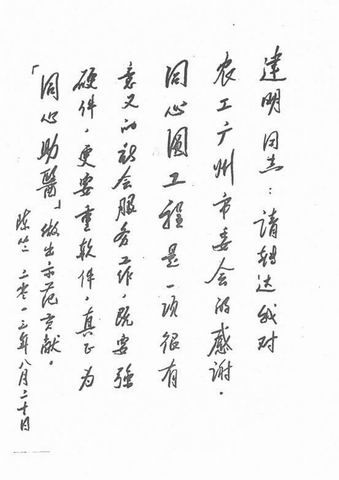 建明同志：请转达我对
农工广州市委会的感谢．
同心圆工程是一项很有
意义的社会服务工作，既要强
硬件，更要重软件，真正为
「同心助醫」做出示范贡献．
陈竺 二零一三年八月二十日